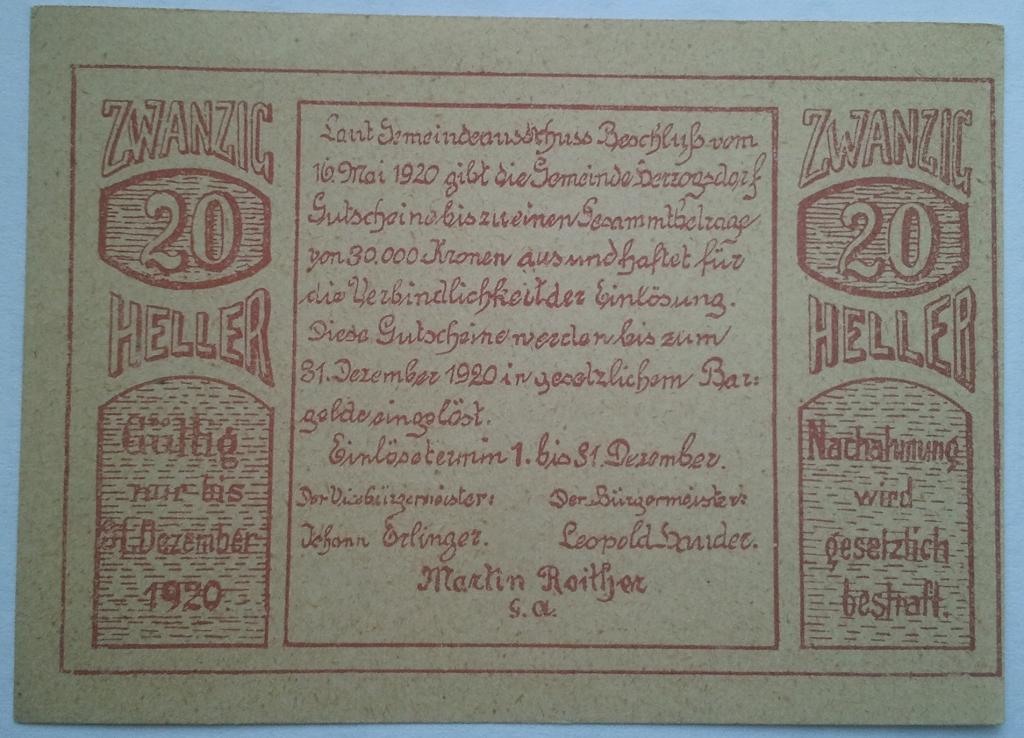 ZWANZIG
20
HELLER
Gültig
nur bis
31. Dezember
1920.
Laut Gemeindeausschuss Beschluß vom
16. Mai 1920 gibt die Gemeinde Herzogsdorf
Gutscheine bis zu einen Gesammtbetrage
von 30.000 Kronen aus und haftet für
die Verbindlichkeit der Einlösung.
Diese Gutscheine werden bis zum
31. Dezember 1920 in gesetzlichem Bar=
gelde eingelöst.
Einlösetermin 1. bis 31. Dezember.
Der Vizebürgermeister: Der Bürgermeister:
Johann Erlinger. Leopold
Martin Roither
G. A.
ZWANZIG
20
HELLER
Nachahmung
wird
gesetzlich
bestraft.